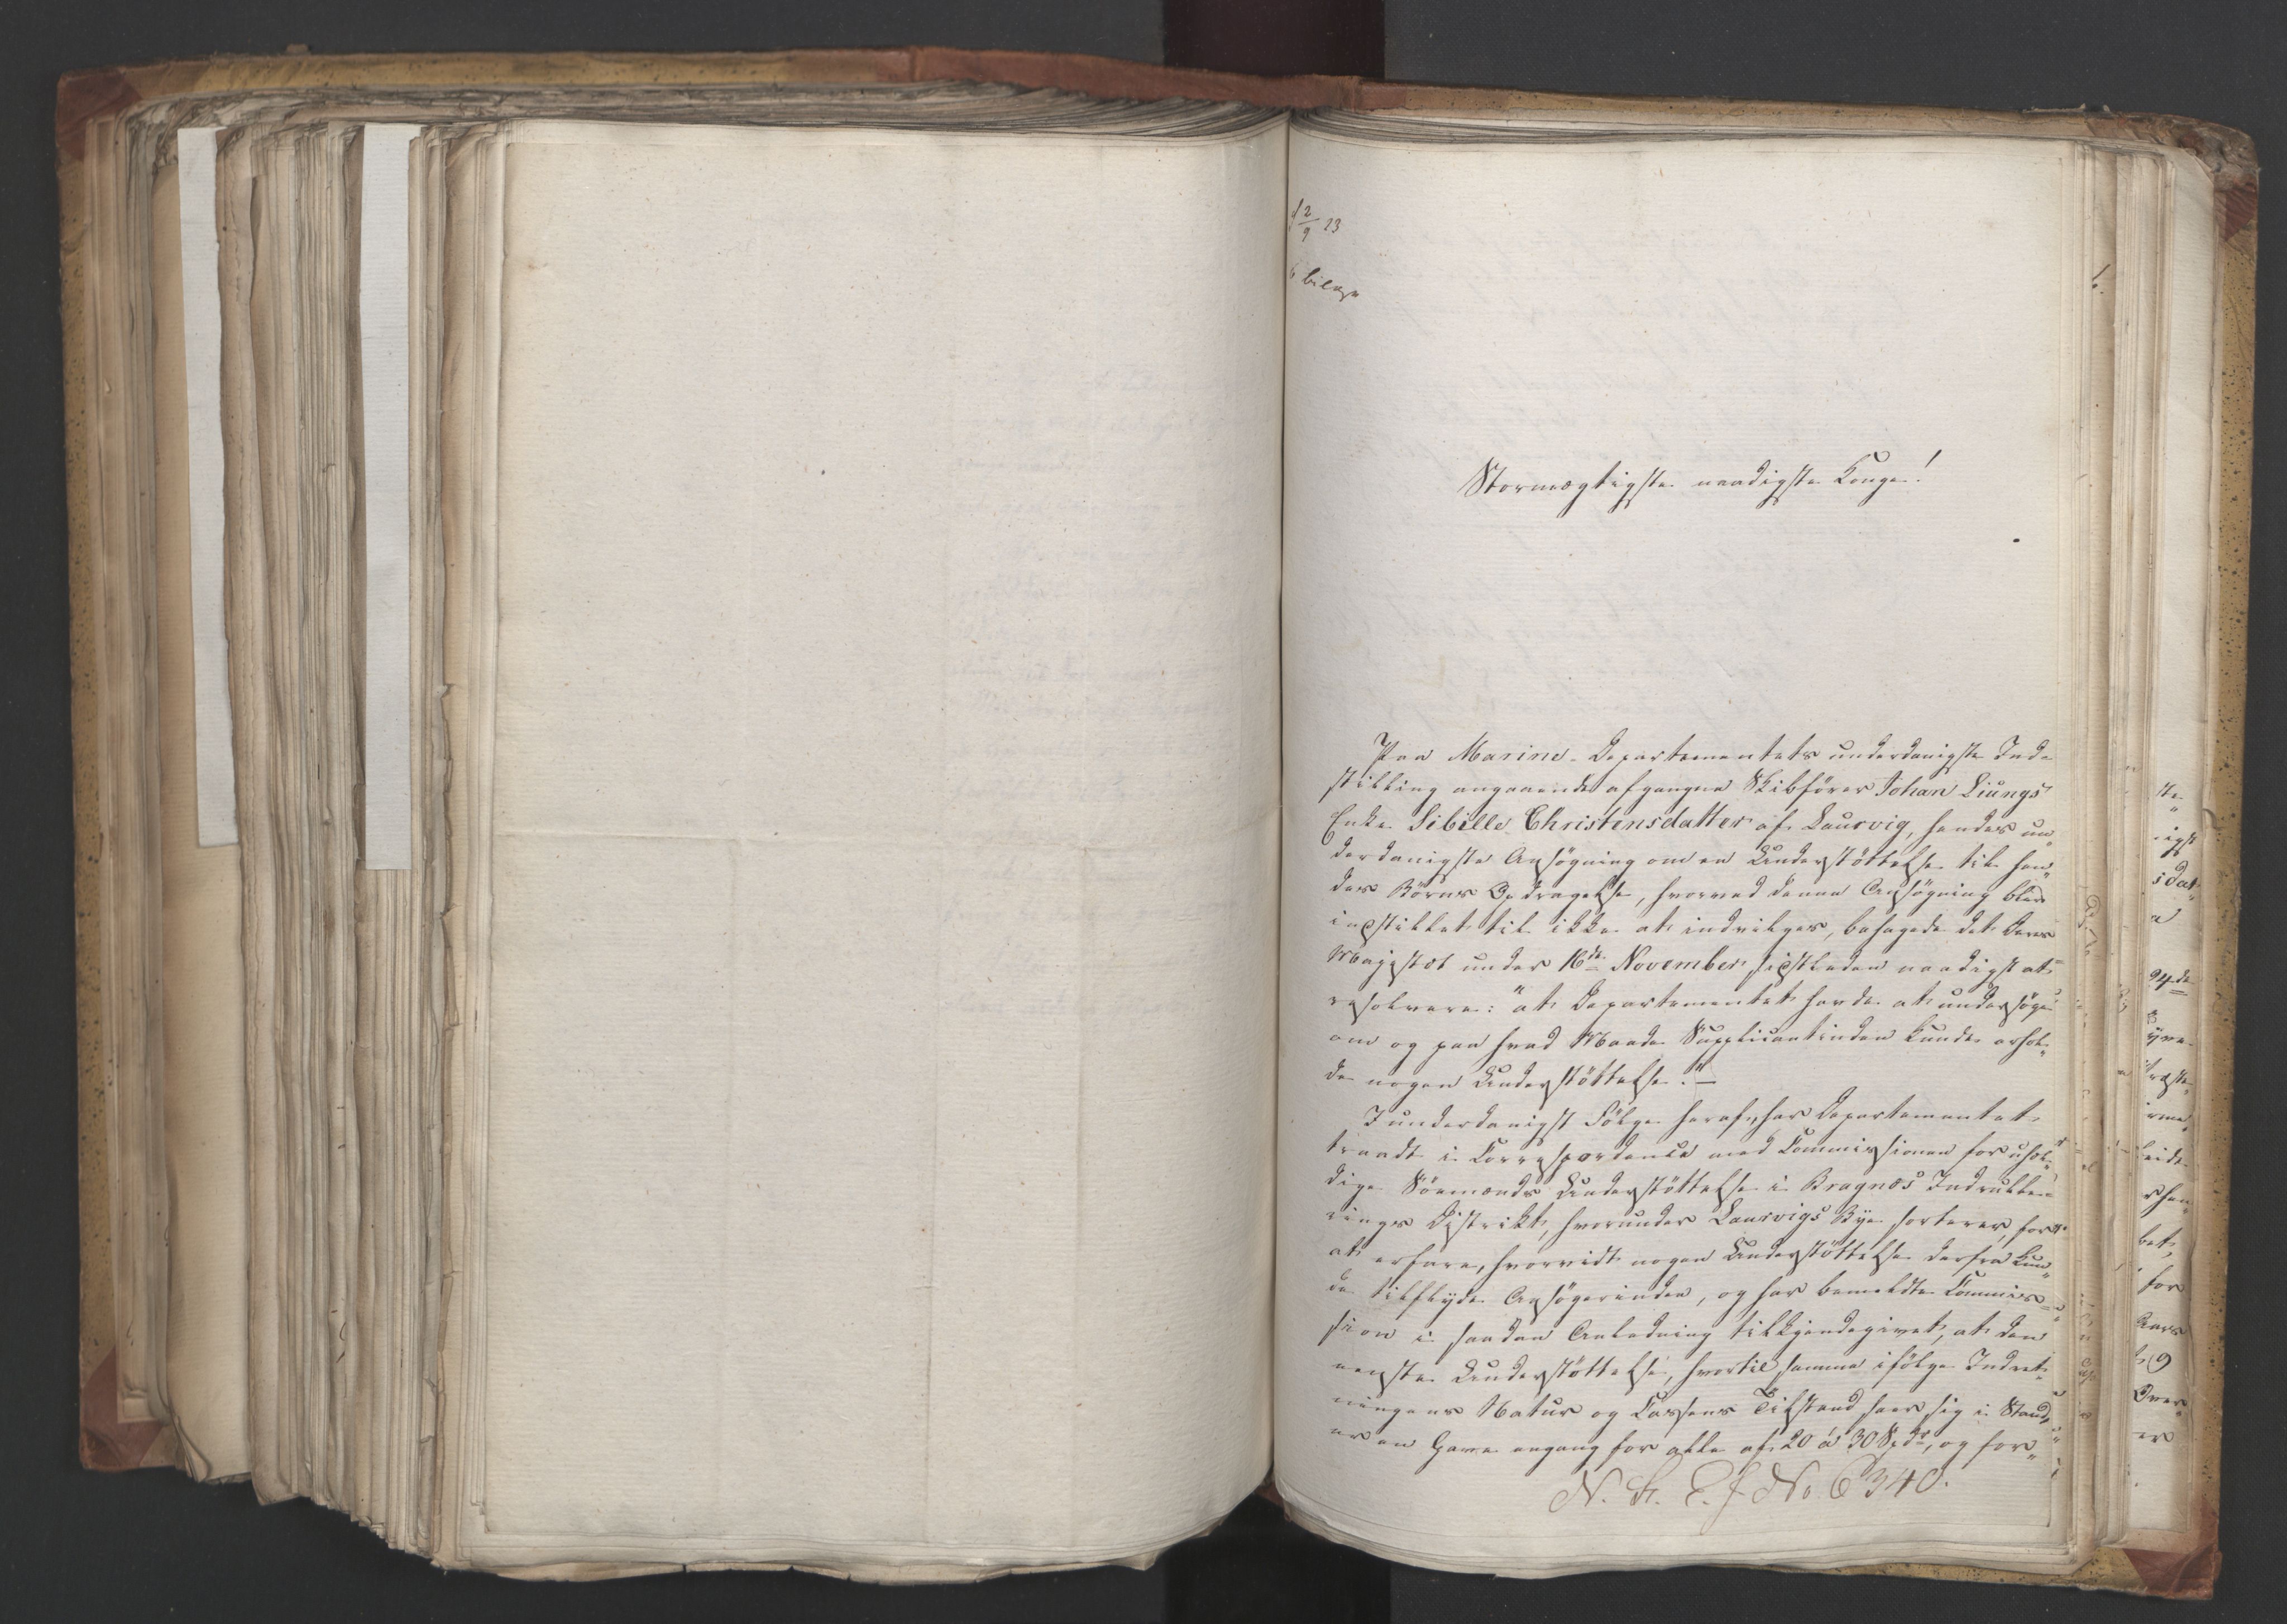 d 2/9 23
6 bilage
1.
Stormægtigste naadigste Konge!
Paa Marine-Departementets underdanigste Ind-
stilling angaaende afgangne Skibsfører Johan Liungs
Enke Sibille Christensdatter af Laurvig, hendes un„
derdanigste Ansøgning om en Understøttelse til hen„
des Børns Opdragelse, hvorved denne Ansøgning blev
indstillet til ikke at indvilges, behagede det Deres
Majestæt under 16de November sidstleden naadigst at
resolvere: "at Departementet havde at undersøge
om og paa hvad Maade Supplicantinden kunde erhol„
de nogen Understøttelse."—
I underdanigst Følge heraf, har Departementet
traadt i Correspondence med Commissionen for uhel„
dige Søemænds Understøttelse i Bragnæs Indrulle-
rings District, hvorunder Laurvigs Bye sorterer, for
at erfare, hvorvidt nogen Understøttelse derfra kun„
de tilflyde Ansøgerinden, og har bemeldte Commis„
sion i saadan Anledning tilkjendegivet, at den
eneste Understøttelse, hvortil samme ifølge Indret„
ningens Natur og Cassens Tilstand seer sig i Stand,
er en Gave engang for alle af 20 à 30 Spdr, og for„
N. St. E. J No. 6340.
ste
igst
sdat
94de
for
Aars
9
Over„
er